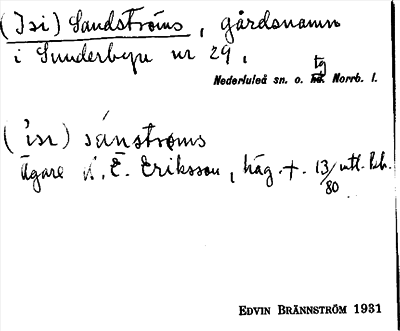 (Isi) Sandströms, gårdsnamn
i Sunderbyn nr 29.
tg
Nederluleå sn. o. hd. Norrb. l.
(isi) sánstroms
Ägare E. Eriksson, häg. 13/80 utl. Bh.
EDVIN BRÄNNSTRÖM 1931